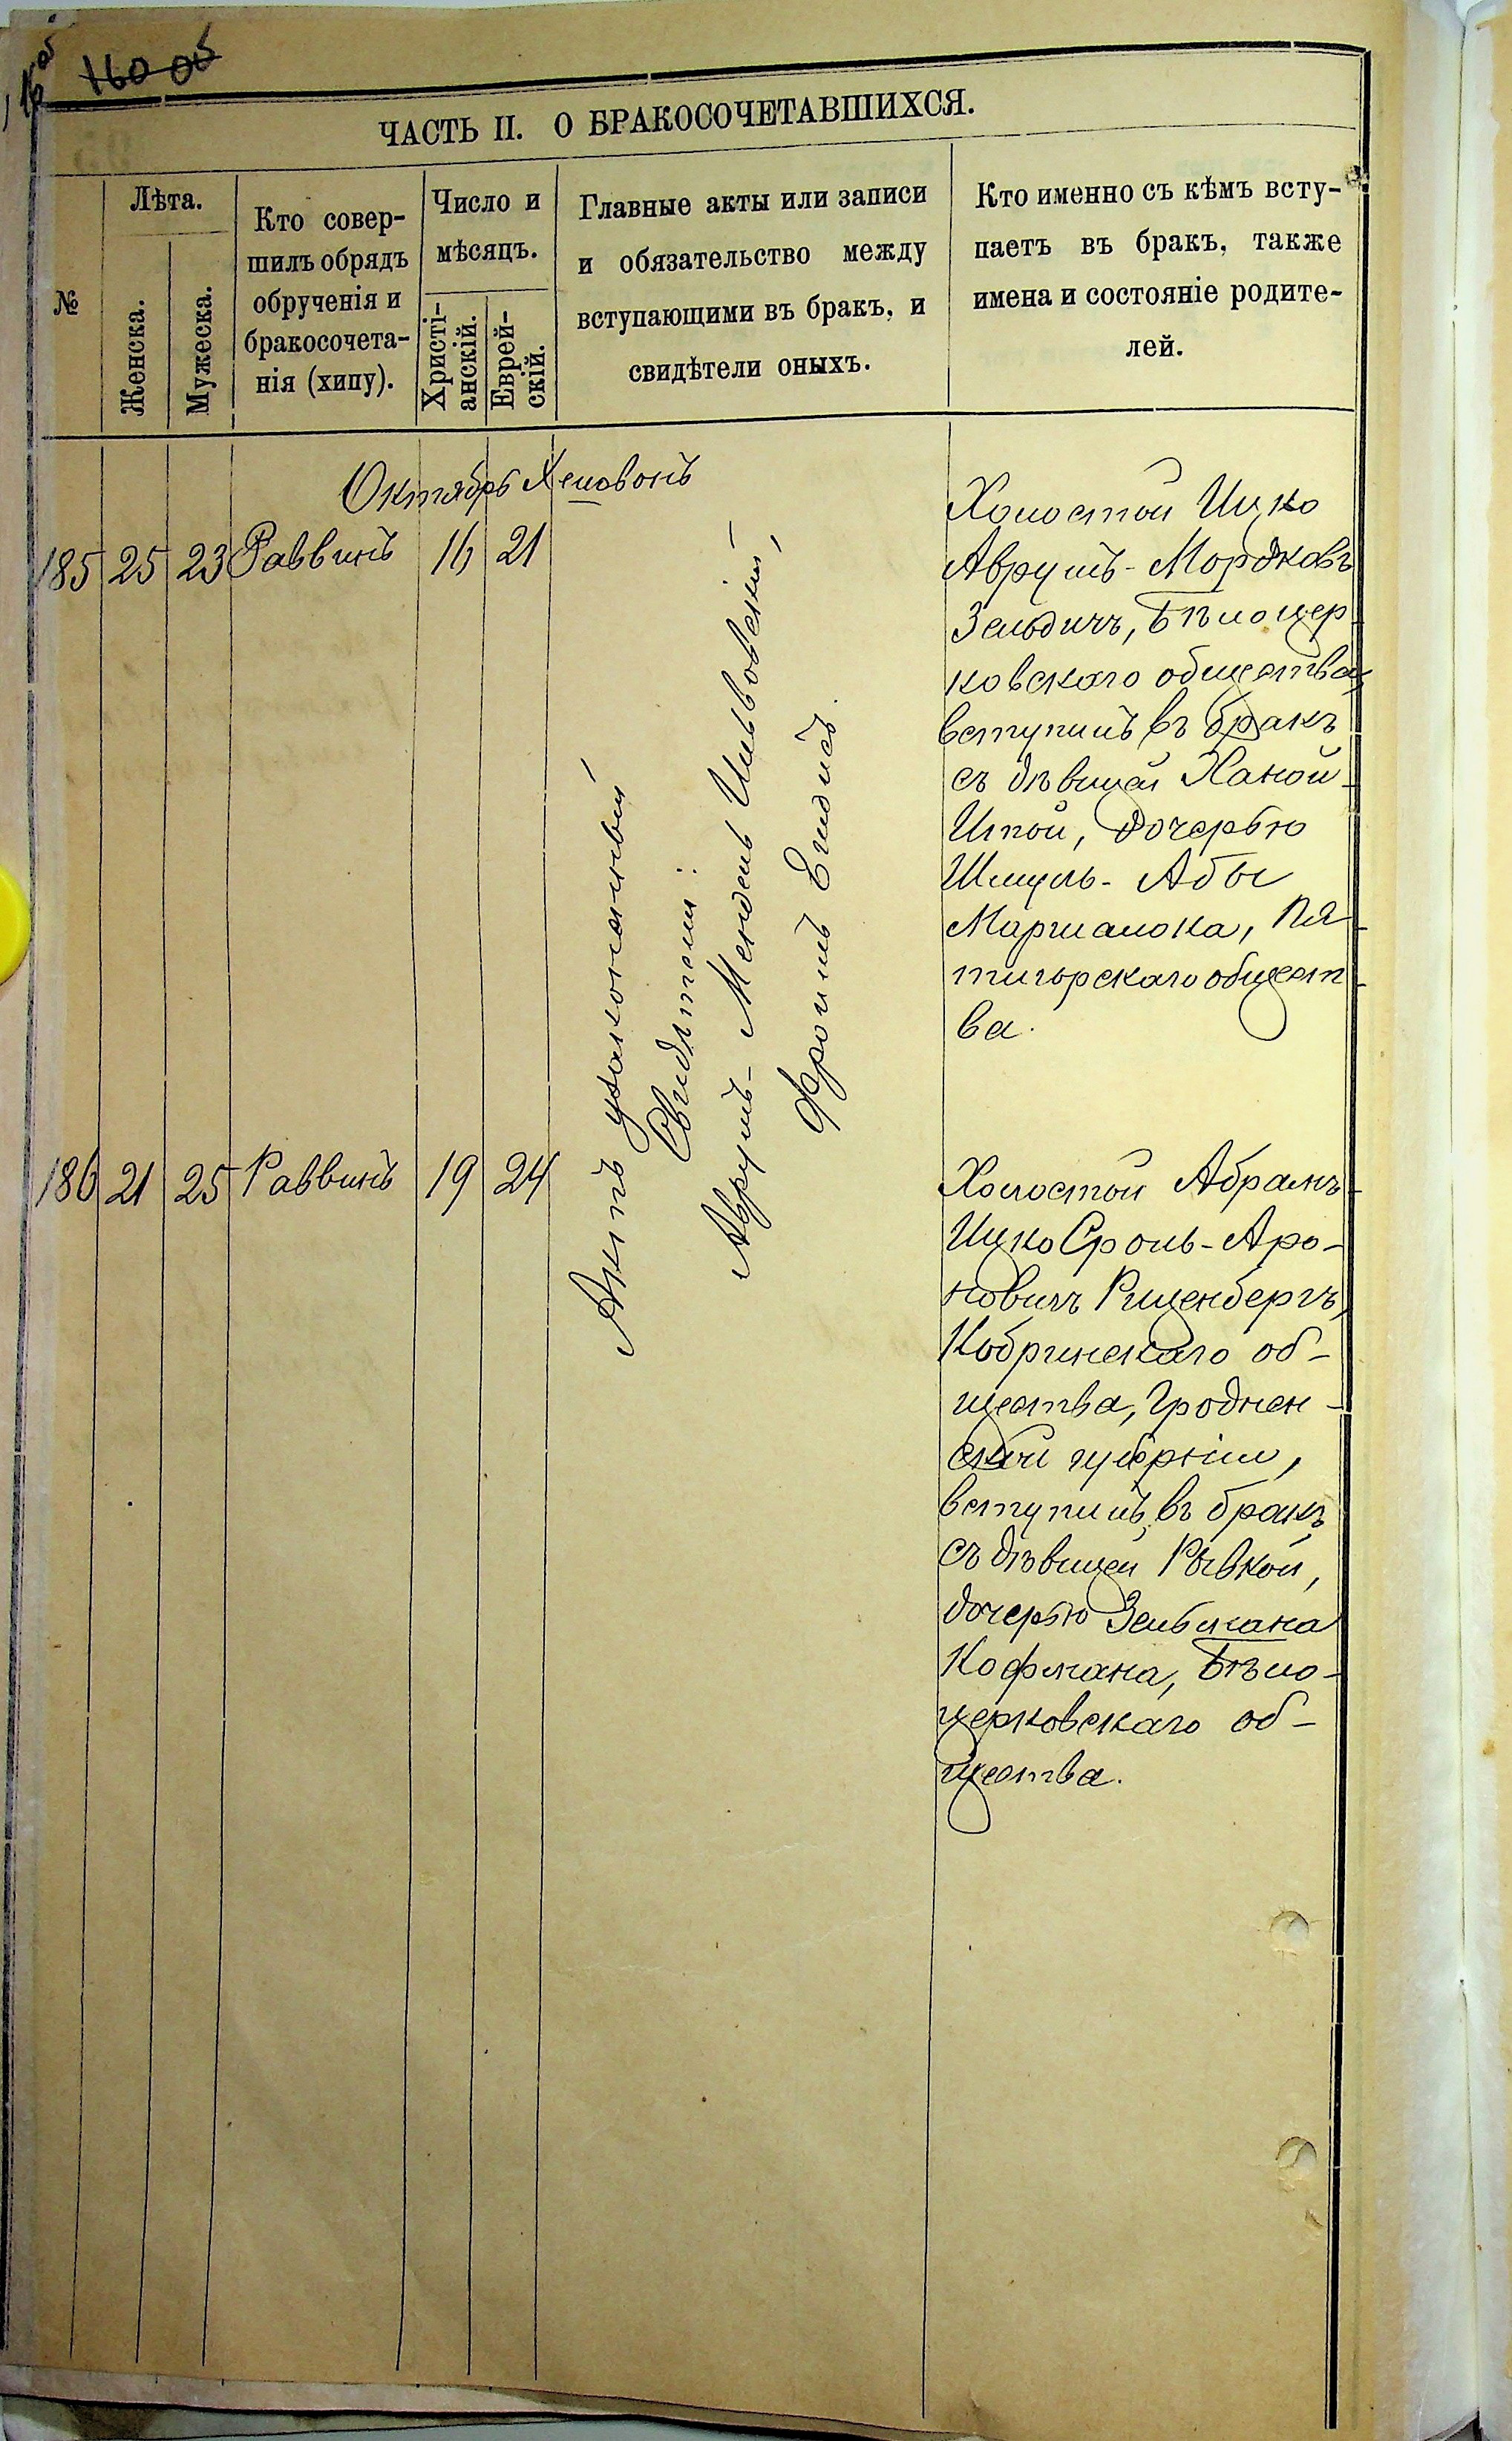 160 об
ЧАСТЬ II. О БРАКОСОЧЕТАВШИХСЯ.
№
Лѣта.
Женска.
Мужеска.
Кто совер-
шилъ обрядъ
обрученія и
бракосочета-
нія (хипу).
Число и
мѣсяцъ.
Христі-
анскій.
Еврей-
скій.
Главные акты или записи
и обязательство между
вступающими въ бракъ, и
свидѣтели оныхъ.
Кто именно съ кѣмъ всту-
паетъ въ бракъ, также
имена и состояніе родите-
лей.
Октябрь Хешвонъ
185 25 23 Раввинъ 16 21
Актъ узаконенный
Свидѣтели:
Аврумъ-Мендель Ильвовскій,
Фроимъ
Холостой Ицко
Аврумъ-Мордковъ
Зельдичъ, Бѣлоцер-
ковскаго общества,
вступилъ въ бракъ
съ дѣвицей Ханой-
Итой, дочерью
Шмуль-Абы
Маргшалока, Пя-
тигорскаго общест-
ва.
186 21 25 Раввинъ 19 24
Холостой Абрамъ-
Ицко Сроль-Аро-
новичъ Риценбергъ,
Кобринскаго об-
щества, Гроднен-
ской губерніи,
вступилъ въ бракъ
съ дѣвицей Рывкой,
дочерью Зельмана
Кофмана, Бѣло-
церковскаго об-
щества.